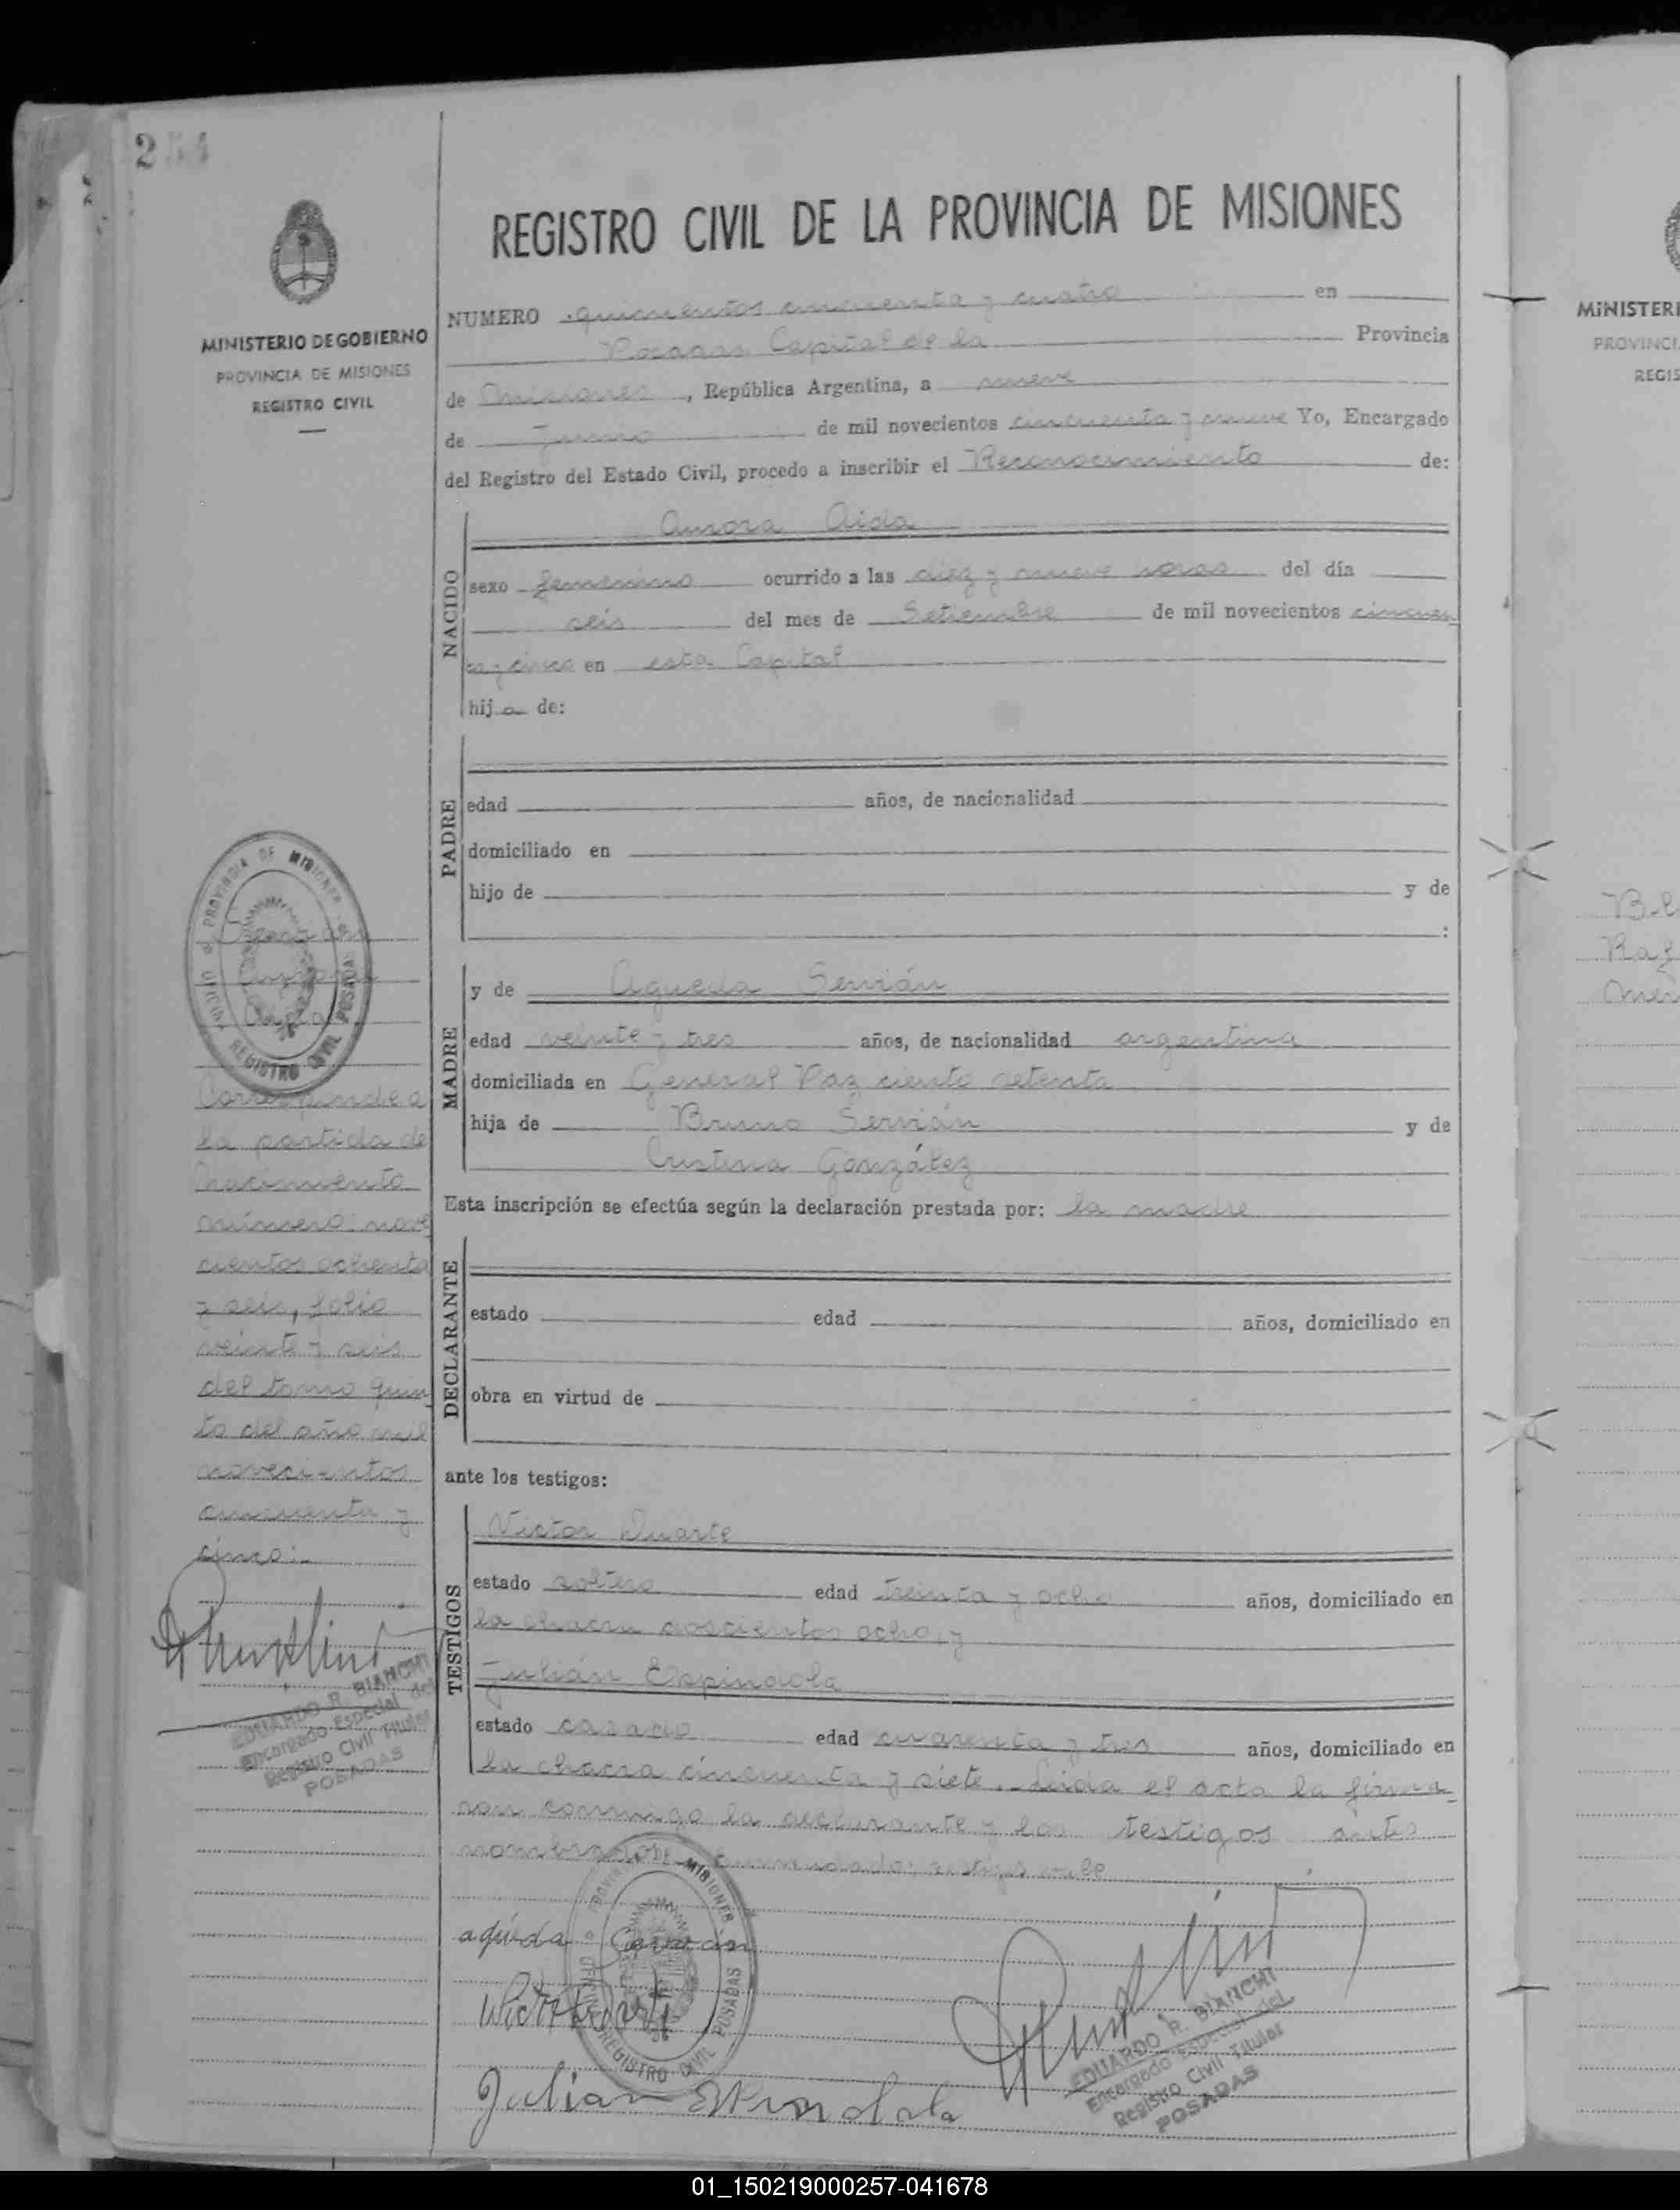 254
MINISTERIO DE GOBIERNO
PROVINCIA DE MISIONES
REGISTRO CIVIL
REGISTRO CIVIL DE LA PROVINCIA DE MISIONES
NUMERO quinientos cincuenta y cuatro en
Posadas Capital de la Provincia
de Misiones, República Argentina, a nueve
de Junio de mil novecientos cincuenta y nueve Yo, Encargado
del Registro del Estado Civil, procedo a inscribir el Reconocimiento de:
NACIDO
Aurora Aida
sexo femenino ocurrido a las diez y nueve horas del día
seis del mes de Setiembre de mil novecientos cincuen
ta y cinco en esta Capital
hija de:
PADRE
edad años, de nacionalidad
domiciliado en
hijo de y de
:
MADRE
y de Agueda Servián
edad veinte y tres años, de nacionalidad argentina
domiciliada en General Paz ciento setenta
hija de Bruno Servián y de
Cristina González
Esta inscripción se efectúa según la declaración prestada por: la madre
DECLARANTE
estado edad años, domiciliado en
obra en virtud de
ante los testigos:
TESTIGOS
Victor Duarte
estado soltero edad treinta y ocho años, domiciliado en
la chacra doscientos ocho, y
Julián Espindola
estado casado edad cuarenta y tres años, domiciliado en
la chacra cincuenta y siete. Leida el acta la firma
son conmigo la declarante y los testigos antes
nombrados
agueda Servian
Victor Duarte
Julian Espindola
EDUARDO R. BIANCHI
Encargado Especial del
Registro Civil Titular
POSADAS
PROVINCIA DE MISIONES
OFICINA REGISTRO CIVIL POSADAS
Servián
Aurora
Aida
Corresponde a
la partida de
Nacimiento
número: nove
cientos ochenta
y seis, folio
veinte y seis
del tomo quin
to del año mil
novecientos
cincuenta y
cinco.-
EDUARDO R. BIANCHI
Encargado Especial del
Registro Civil Titular
POSADAS
PROVINCIA DE MISIONES
OFICINA REGISTRO CIVIL POSADAS
MINISTERI
PROVINCI
REGIS
01_150219000257-041678